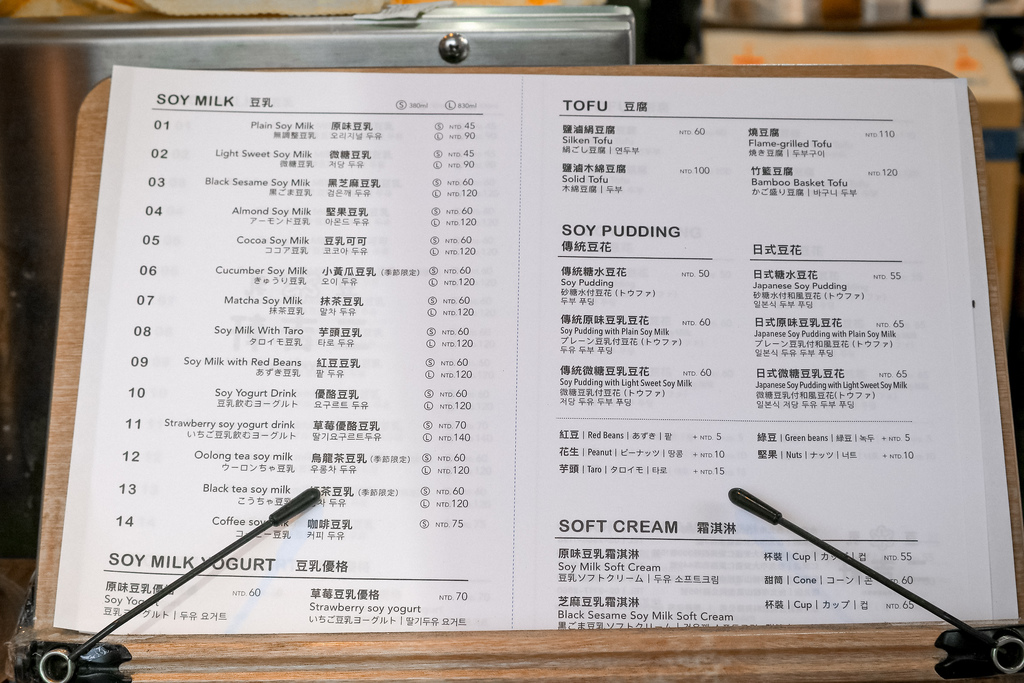 SOY MILK 豆乳 Ⓢ 380ml Ⓛ 830ml
01 Plain Soy Milk 原味豆乳 Ⓢ NTD. 45
無調整豆乳 오리지널 두유 Ⓛ NTD. 90
02 Light Sweet Soy Milk 微糖豆乳 Ⓢ NTD. 45
微糖豆乳 저당 두유 Ⓛ NTD. 90
03 Black Sesame Soy Milk 黑芝麻豆乳 Ⓢ NTD. 60
黒ごま豆乳 검은깨 두유 Ⓛ NTD. 120
04 Almond Soy Milk 堅果豆乳 Ⓢ NTD. 60
アーモンド豆乳 아몬드 두유 Ⓛ NTD. 120
05 Cocoa Soy Milk 豆乳可可 Ⓢ NTD. 60
ココア豆乳 코코아 두유 Ⓛ NTD. 120
06 Cucumber Soy Milk 小黃瓜豆乳 (季節限定) Ⓢ NTD. 60
きゅうり豆乳 오이 두유 Ⓛ NTD. 120
07 Matcha Soy Mlik 抹茶豆乳 Ⓢ NTD. 60
抹茶豆乳 말차 두유 Ⓛ NTD. 120
08 Soy Milk With Taro 芋頭豆乳 Ⓢ NTD. 60
タロイモ豆乳 타로 두유 Ⓛ NTD. 120
09 Soy Milk with Red Beans 紅豆豆乳 Ⓢ NTD. 60
あずき豆乳 팥 두유 Ⓛ NTD. 120
10 Soy Yogurt Drink 優酪豆乳 Ⓢ NTD. 60
豆乳飲むヨーグルト 요구르트 두유 Ⓛ NTD. 120
11 Strawberry soy yogurt drink 草莓優酪豆乳 Ⓢ NTD. 70
いちご豆乳飲むヨーグルト 딸기요구르트두유 Ⓛ NTD. 140
12 Oolong tea soy milk 烏龍茶豆乳 (季節限定) Ⓢ NTD. 60
ウーロンちゃ豆乳 우롱차 두유 Ⓛ NTD. 120
13 Black tea soy milk 茶豆乳 (季節限定) Ⓢ NTD. 60
こうちゃ豆乳 차 두유 Ⓛ NTD. 120
14 Coffee soy 咖啡豆乳 Ⓢ NTD. 75
豆乳 커피 두유
SOY MILK YOGURT 豆乳優格
原味豆乳優 NTD. 60 草莓豆乳優格 NTD. 70
Soy Strawberry soy yogurt
豆乳 ーグルト | 두유 요거트 いちご豆乳ヨーグルト | 딸기두유 요거트
TOFU 豆腐
鹽滷絹豆腐 NTD. 60 燒豆腐 NTD. 110
Silken Tofu Flame-grilled Tofu
絹ごし豆腐 | 연두부 焼き豆腐 | 두부구이
鹽滷木綿豆腐 NTD. 100 竹籃豆腐 NTD. 120
Solid Tofu Bamboo Basket Tofu
木綿豆腐 | 두부 かご盛り豆腐 | 바구니 두부
SOY PUDDING
傳統豆花 日式豆花
傳統糖水豆花 NTD. 50 日式糖水豆花 NTD. 55
Soy Pudding Japanese Soy Pudding
砂糖水付豆花 (トウファ) 砂糖水付和風豆花 (トウファ)
두부 푸딩 일본식 두부 푸딩
傳統原味豆乳豆花 NTD. 60 日式原味豆乳豆花 NTD. 65
Soy Pudding with Plain Soy Milk Japanese Soy Pudding with Plain Soy Milk
プレーン豆乳付豆花 (トウファ) プレーン豆乳付和風豆花 (トウファ)
두유 두부 푸딩 일본식 두유 두부 푸딩
傳統微糖豆乳豆花 NTD. 60 日式微糖豆乳豆花 NTD. 65
Soy Pudding with Light Sweet Soy Milk Japanese Soy Pudding with Light Sweet Soy Milk
微糖豆乳付豆花 (トウファ) 微糖豆乳付和風豆花(トウファ)
저당 두유 두부 푸딩 일본식 저당 두유 두부 푸딩
紅豆 | Red Beans | あずき | 팥 + NTD. 5 綠豆 | Green beans | 緑豆 | 녹두 + NTD. 5
花生 | Peanut | ピーナッツ | 땅콩 + NTD. 10 堅果 | Nuts | ナッツ | 너트 + NTD. 10
芋頭 | Taro | タロイモ | 타로 + NTD. 15
SOFT CREAM 霜淇淋
原味豆乳霜淇淋 杯裝 | Cup | カップ | 컵 NTD. 55
Soy Milk Soft Cream
豆乳ソフトクリーム | 두유 소프트크림 甜筒 | Cone | コーン | 콘 60
芝麻豆乳霜淇淋 杯裝 | Cup | カップ | 컵 NTD. 65
Black Sesame Soy Milk Soft Cream
黒ごま豆乳ソフトクリーム